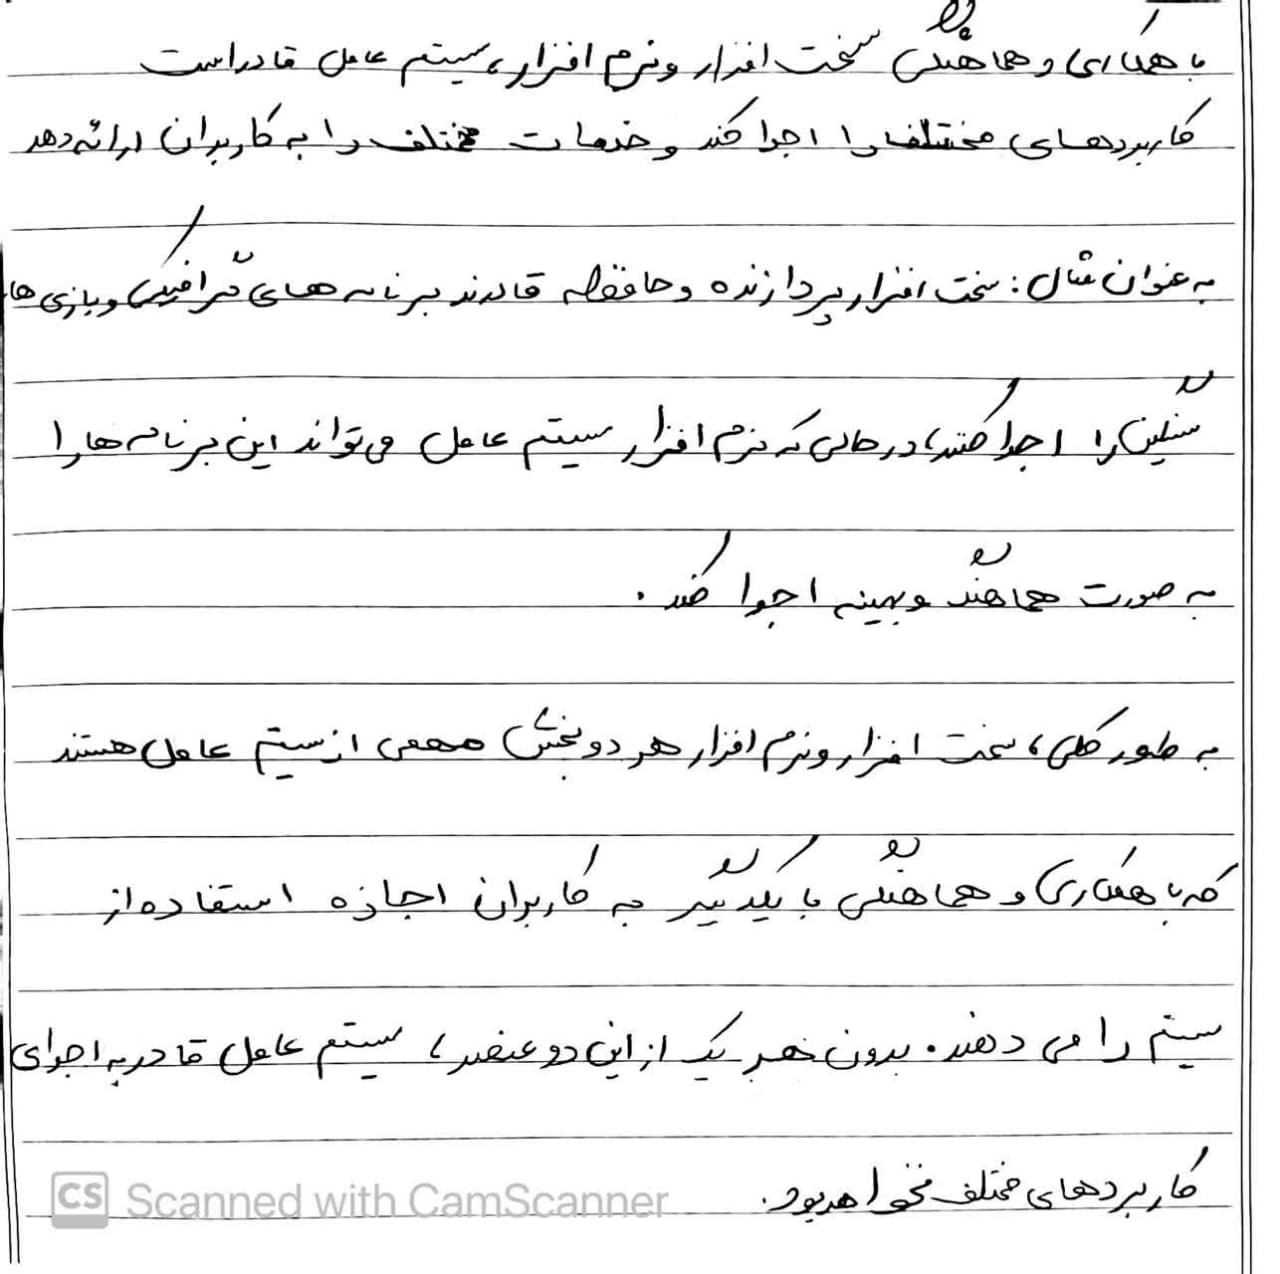 با همکاری و هماهنگی سخت افزار و نرم افزار، سیستم عامل قادر است
کاربردهای مختلف را اجرا کند و خدمات مختلف را به کاربران ارائه دهد
به عنوان مثال: سخت افزار پردازنده و حافظه قادرند برنامه های گرافیکی و بازی ها
سنگین را اجرا کنند، در حالی که نرم افزار سیستم عامل می تواند این برنامه ها را
به صورت هماهنگ و بهینه اجرا کند.
به طور کلی، سخت افزار و نرم افزار هر دو بخش مهمی از سیستم عامل هستند
که با همکاری و هماهنگی با یکدیگر به کاربران اجازه استفاده از
سیستم را می دهند. بدون هر یک از این دو عنصر، سیستم عامل قادر به اجرای
کاربردهای مختلف نخواهد بود.
CS Scanned with CamScanner